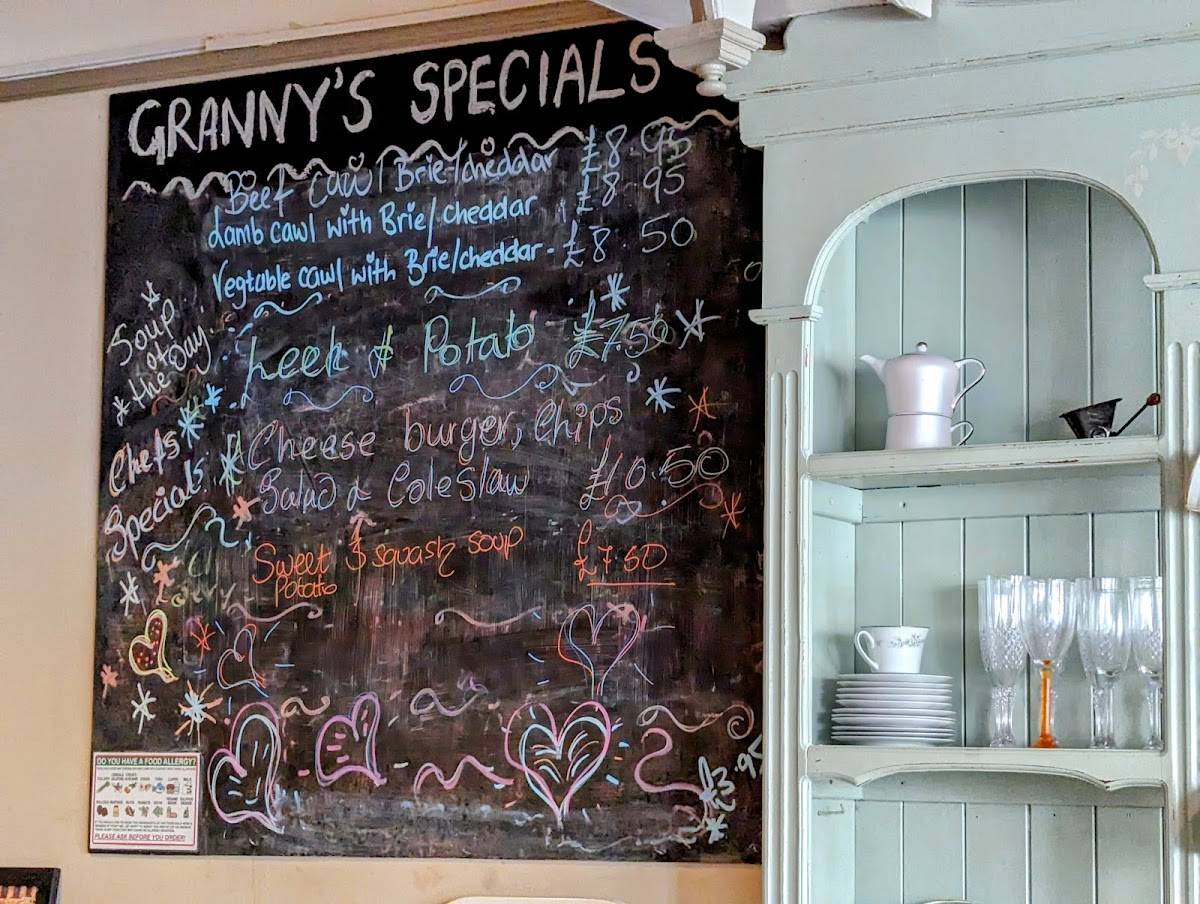 GRANNY'S SPECIALS
Beef cawl Brie/cheddar £8.95
Lamb cawl with Brie/cheddar £8.95
Vegtable cawl with Brie/cheddar - £8.50
Soup of the Day
Leek & Potato £7.50
Chefs Specials
Cheese burger, Chips
Salad & Coleslaw £10.50
Sweet Potato & squash soup £7.50
£3.95
DO YOU HAVE A FOOD ALLERGY?
PLEASE ASK BEFORE YOU ORDER!